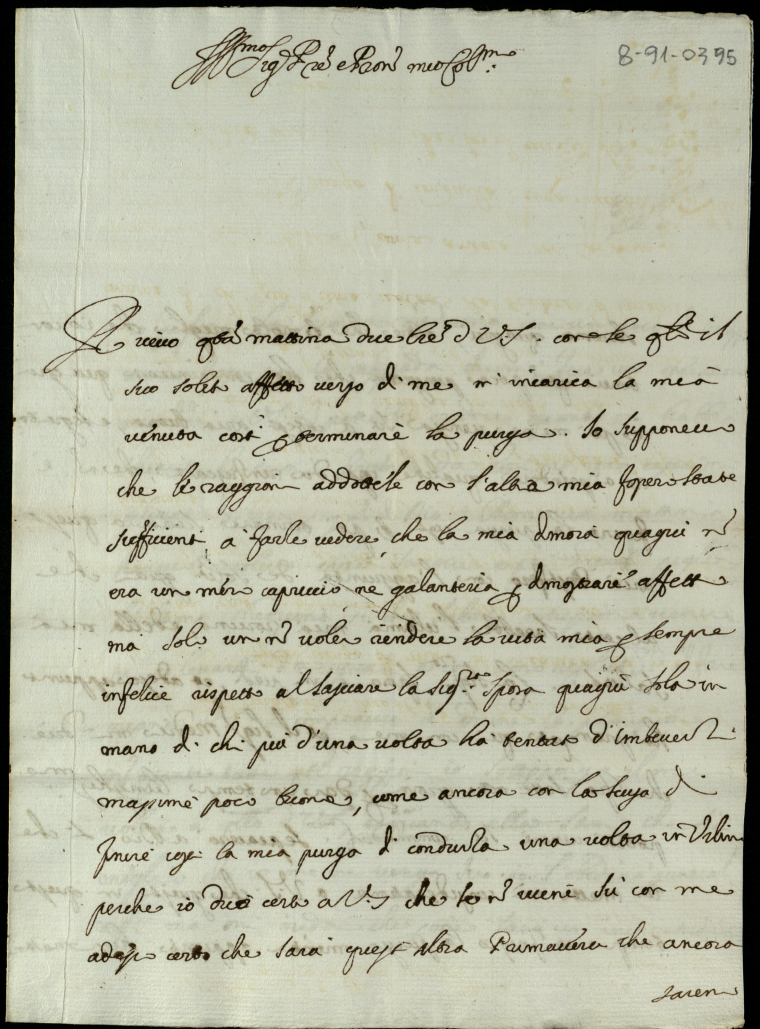 8-91-0395
Illmo Sigr Pre e Pron mio Colmo
Ricevo qta mattina due lre d V.S. con le qli il
suo solito affetto verso di me m'incarica la mia
venuta costì p terminare la purga. Io supponevo
che le raggioni addottele con l'altra mia fossero state
sufficienti à farle vedere che la mia dmora quagiù n
era un mero capriccio ne galanteria p dmostrare affetto
ma solo un n voler rendere la vita mia p sempre
infelice rispetto al lasciare la Sigra Sposa quagiù sola in
mano di chi più d'una volta hà tentato d'imbeverli
massime poco buone, come ancora con la scusa di
finire costì la mia purga di condurla una volta in Urbino
perche io dico certo a V.S che se n viene sù con me
adesso certo che sarà quest'altra Primavera che ancora
saremo